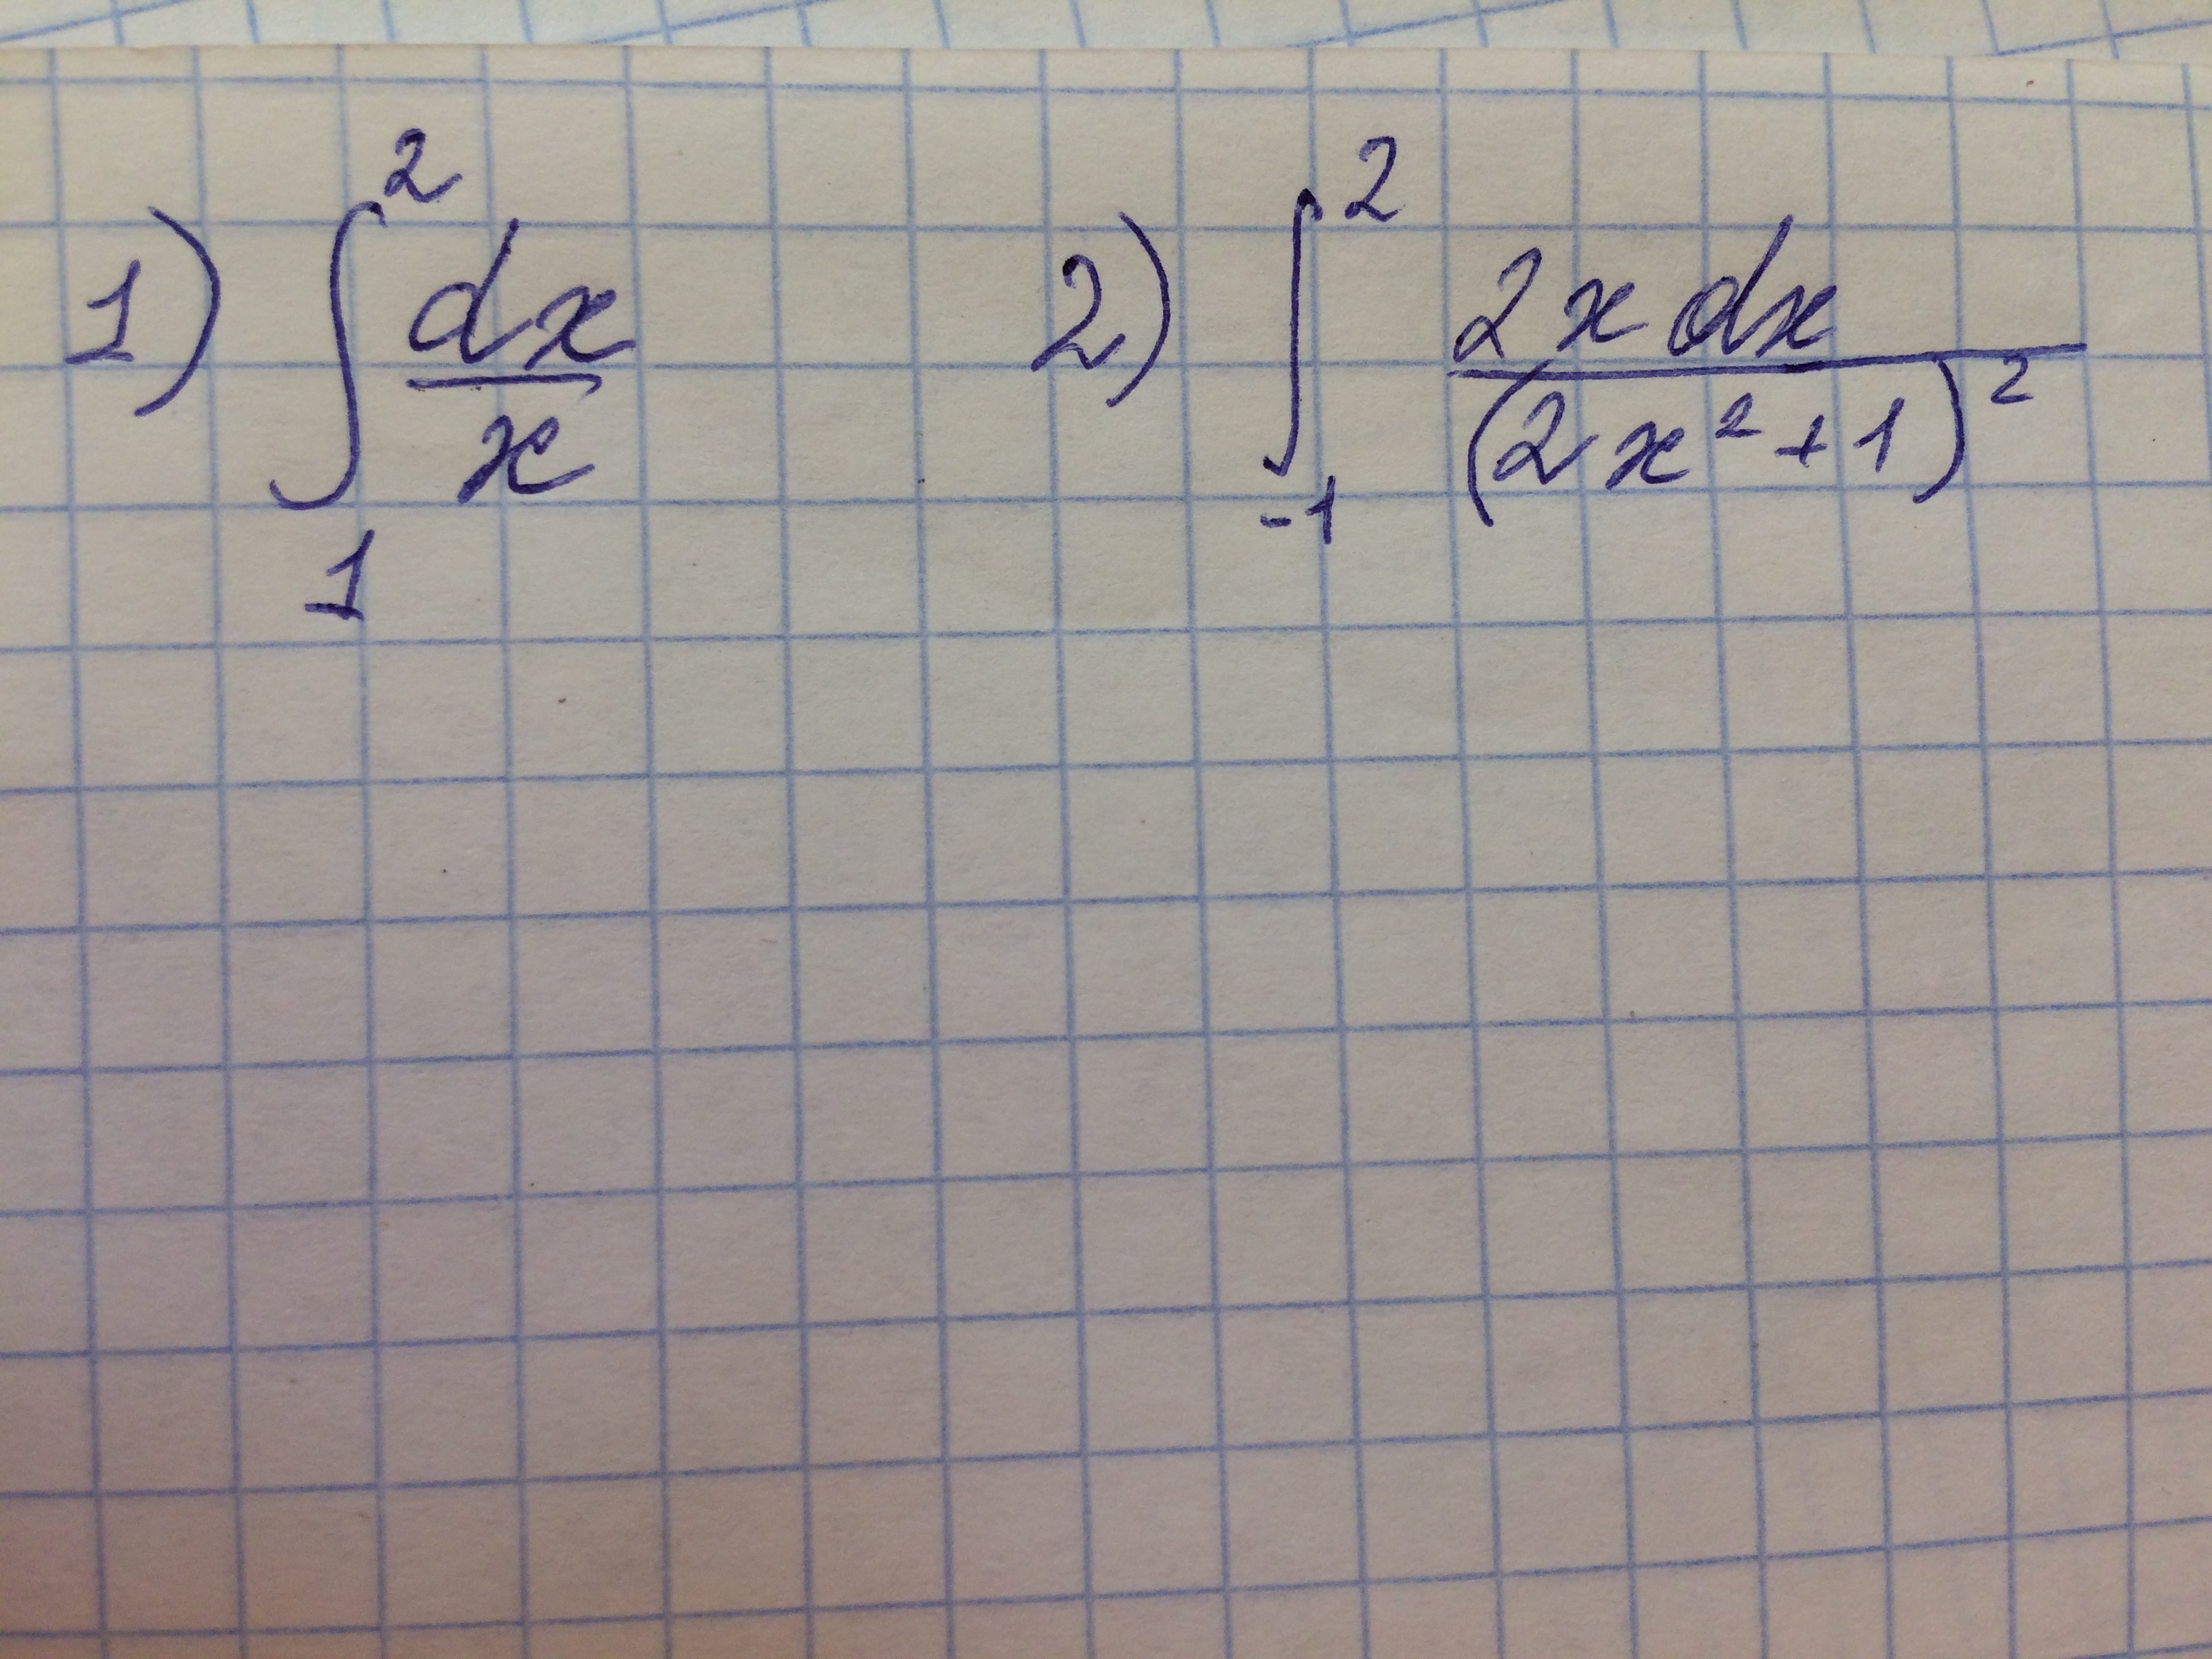 1) ∫₁² dx/x 2) ∫₋₁² 2x dx/(2x²+1)²